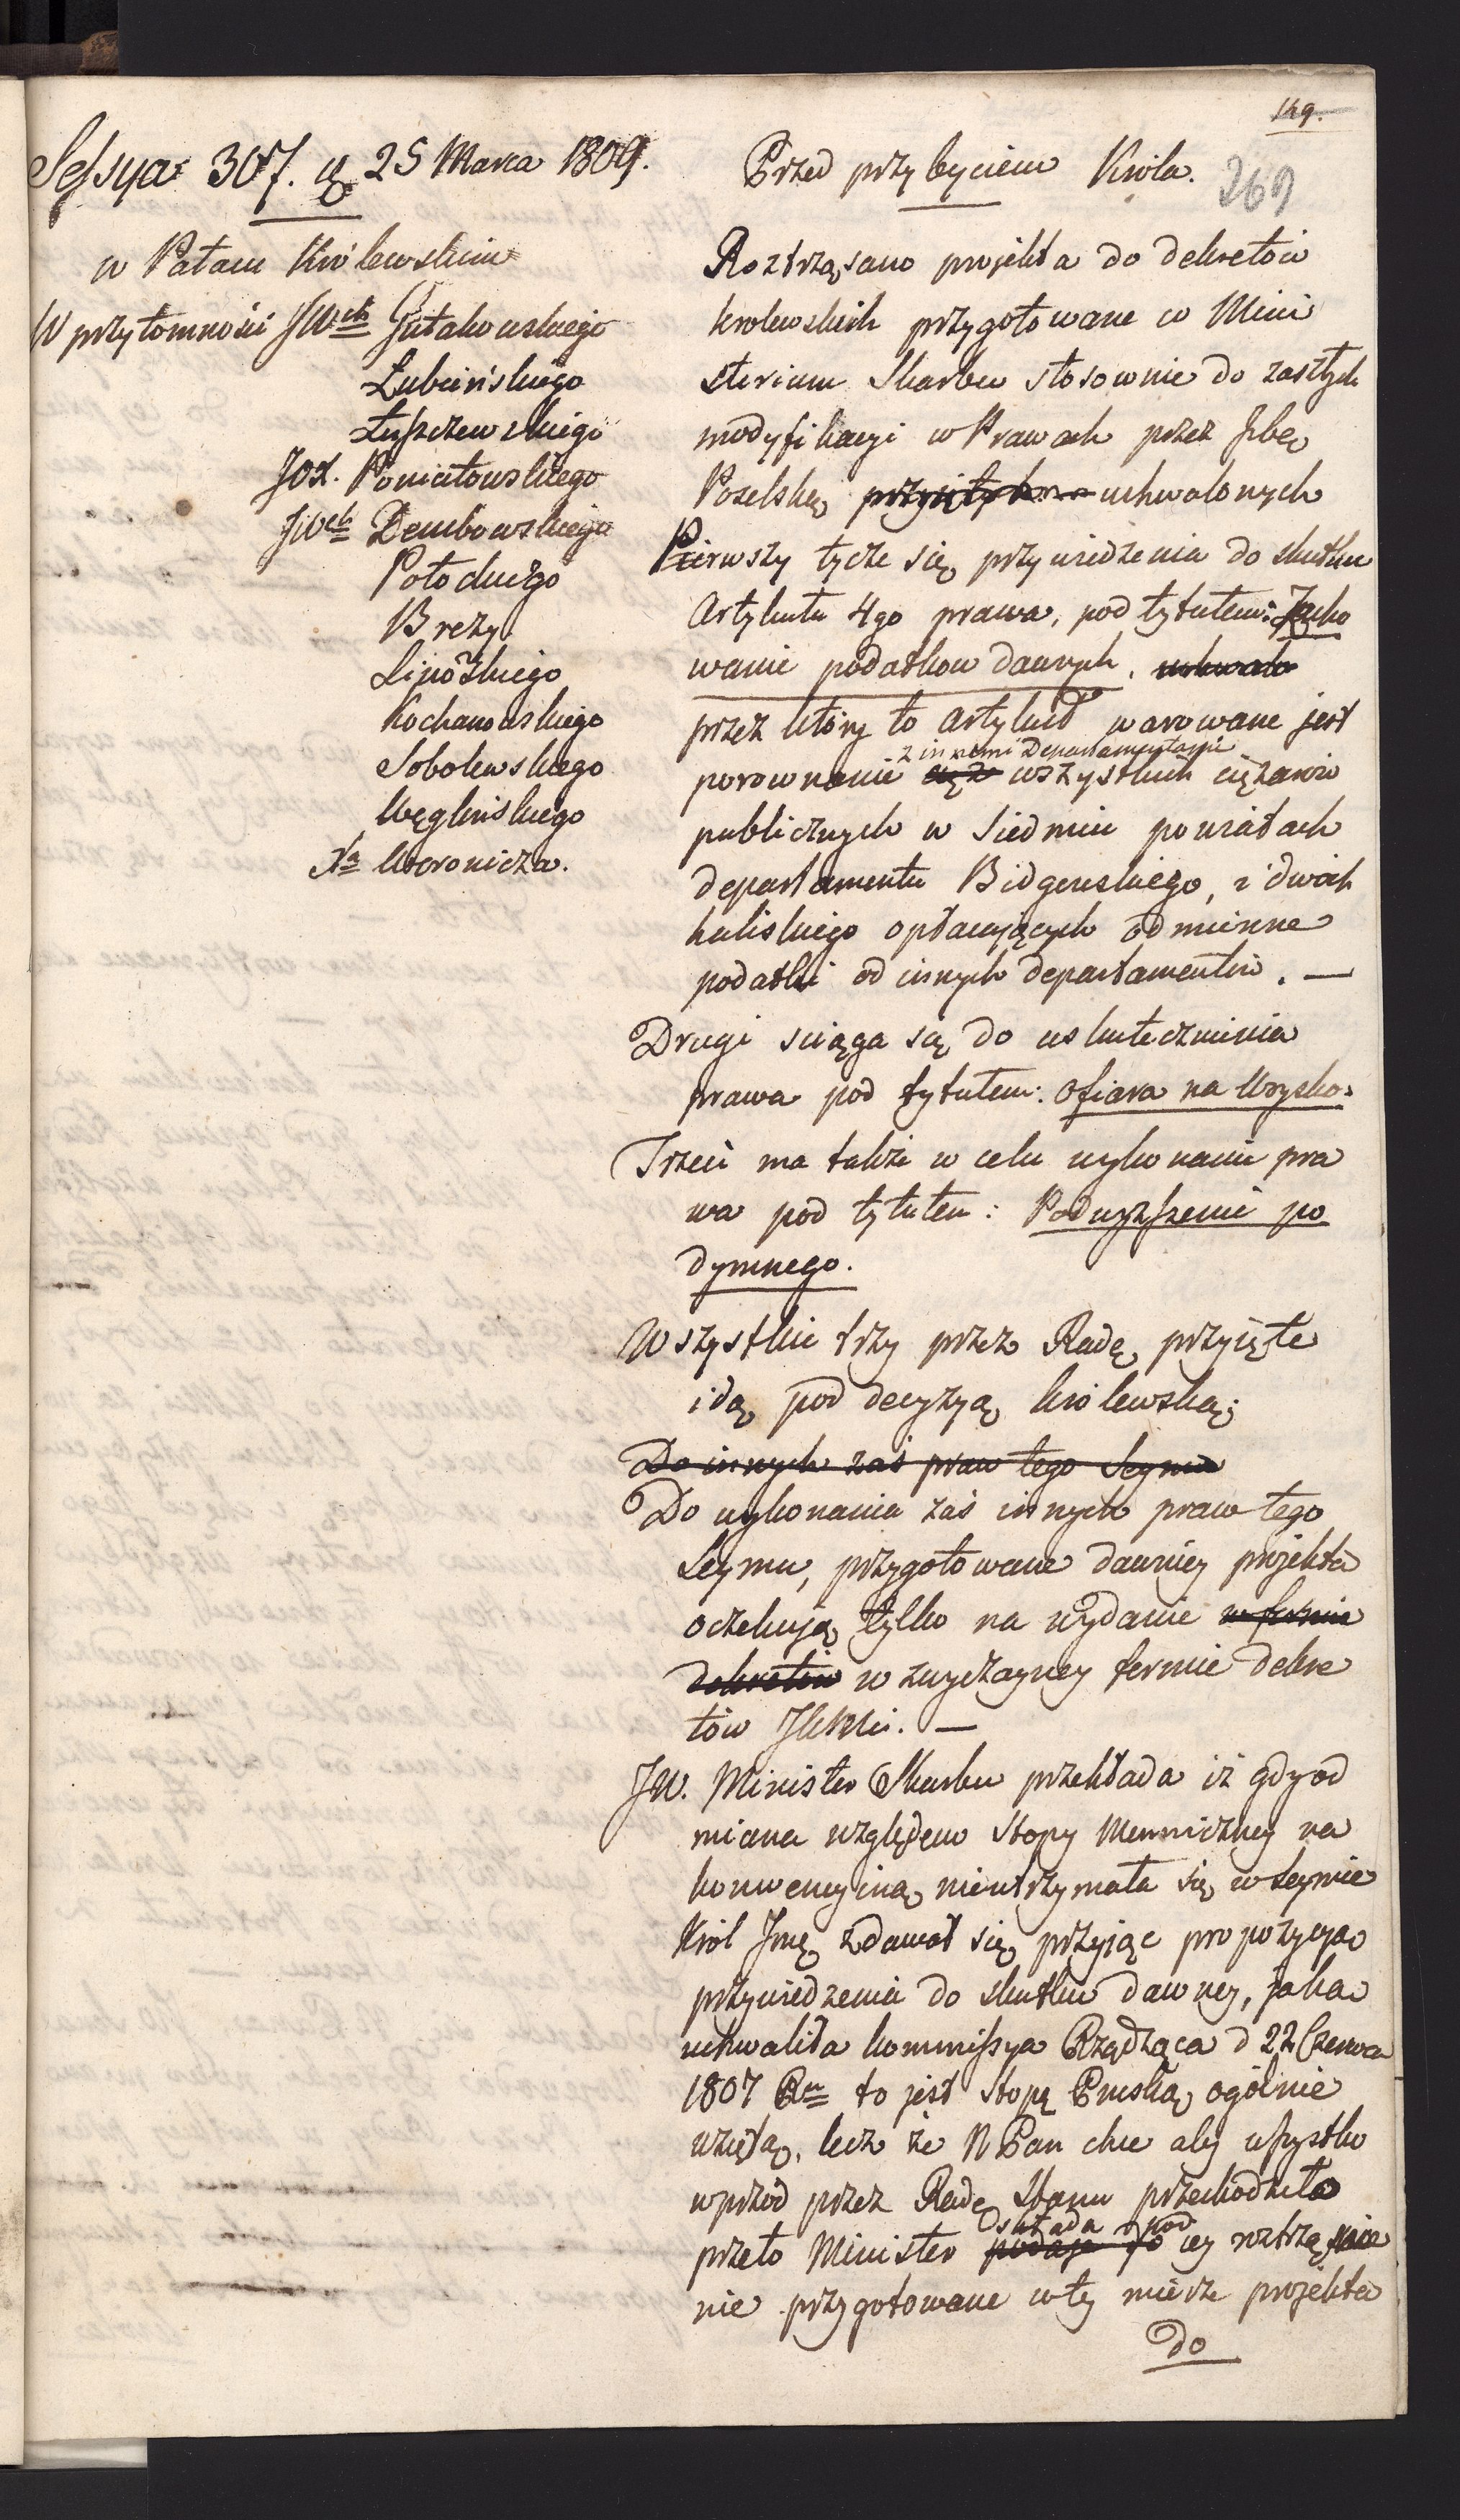 149.
269
Sessya 307. d. 25 Marca 1809.
w Pałacu Królewskim
W przytomności JWch Gutakowskiego
Łubieńskiego
Łuszczewskiego
JOX. Poniatowskiego
JWch Dembowskiego
Potockiego
Brezy
Lipskiego
Kochanowskiego
Sobolewskiego
Węglińskiego
Xa Woronicza.
Przed przybyciem Króla.
Roztrząsano projekta do dekretów
krolewskich przygotowane w Mini
sterium Skarbu stosownie do zaszłych
modyfikacyi w Prawach przez Jzbę
Poselską przyiętych uchwalonych
Pierwszy tycze się przywiedzenia do skutku
Artykułu 4go prawa, pod tytułem: Zacho
wanie podatkow dawnych, uchwalo
przez który to Artykuł warowane jest
z innemi Departamentami
porownanie cięż wszystkich ciężarów
publicznych w siedmiu powiatach
departamentu Bidgoskiego, i dwóch
kaliskiego opłacających odmienne
podatki od innych departamentów. —
Drugi sciąga się do uskutecznienia
prawa pod tytułem: Ofiara na Woysko.
Trzeci ma także w celu wykonanie pra
wa pod tytułem: Podwyższenie po
dymnego.
Wszystkie trzy przez Radę przyięte
idą pod decyzyą królewską;
Do innych zaś praw tego Seymu
Do wykonania zaś innych praw tego
Seymu, przygotowane dawniey projekta
oczekują tylko na wydanie w formie
dekretów w zwyczayney formie dekre
tów JKMci. —
JW. Minister Skarbu przekłada iż gdy od
miana względem stopy Menniczney na
konwencyiną nieutrzymała się w Seymie
Król Jmć zdawał się przyjąc propozycya
przywiedzenia do skutku dawney, jaka
uchwaliła kommissya Rządząca d 22 Czerwca
1807 Ru to jest stopę Pruską ogólnie
wziętą, lecz że N Pan chce aby wszystko
wprzód przez Radę Stanu przechodziło
składa pod
przeto Minister podaje do iey roztrząśnie
nie przygotowane w tey mierze projekta
do